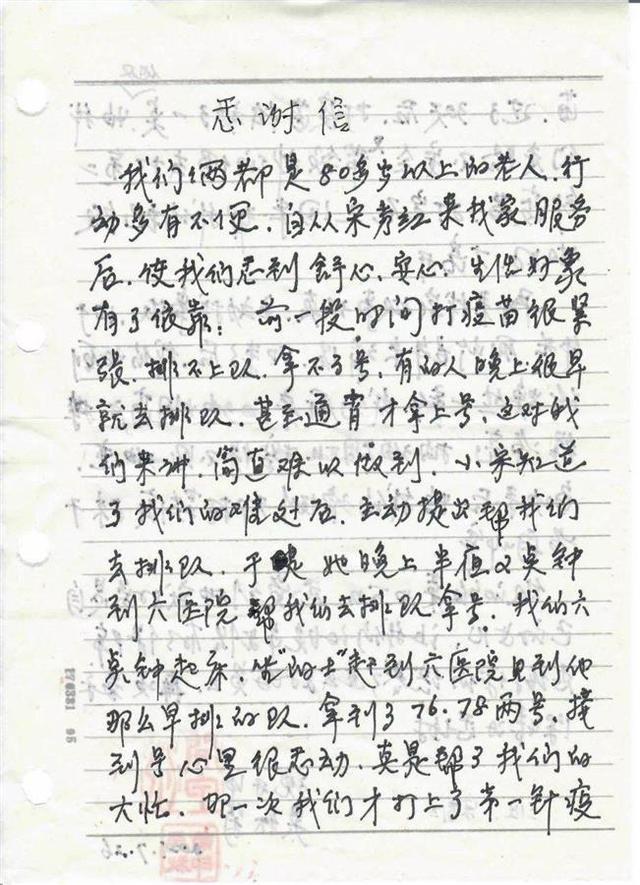 感谢信
我们俩都是80多岁以上的老人.行
动多有不便.自从宋考红来我家服务
后.使我们感到舒心、安心.生活好象
有了依靠；前一段时间打疫苗很紧
张.排不上队.拿不了号.有的人晚上很早
就去排队.甚至通宵才拿上号.这对我
们来讲.简直难以做到.小宋知道
了我们的难处后.主动提出帮我们
去排队.于是她晚上半夜2点钟
到六医院帮我们去排队拿号.我们六
点钟起床.坐"的士"赶到六医院见到他
那么早排的队.拿到了76.78两号.接
到号心里很感动.真是帮了我们的
大忙.那一次我们才打上了第一针疫
170381 95